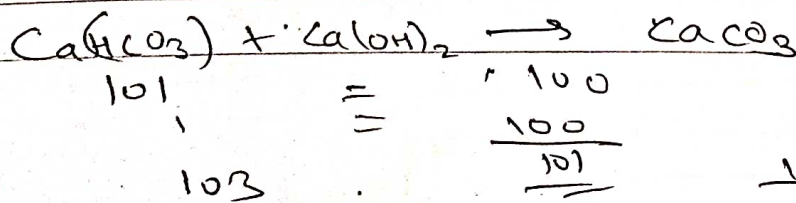 Ca(HCO3) + Ca(OH)2 → CaCO3
101 = 100
1 = 100/101
103 .